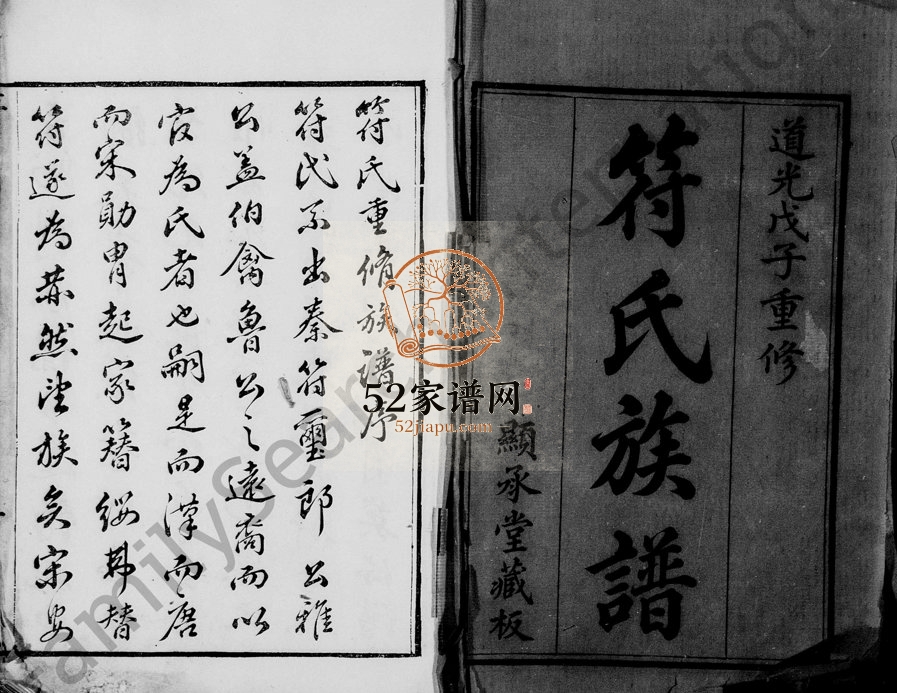 道光戊子重修
符氏族譜
顯承堂藏板
符氏重脩族譜序
符氏系出秦符璽郎公雅
公蓋伯禽魯公之遠裔而以
官為氏者也嗣是而漢而唐
而宋勛胄起家簪纓弗替
符遂為恭然望族矣宋安
52家谱网
52jiapu.com
FamilySearch International